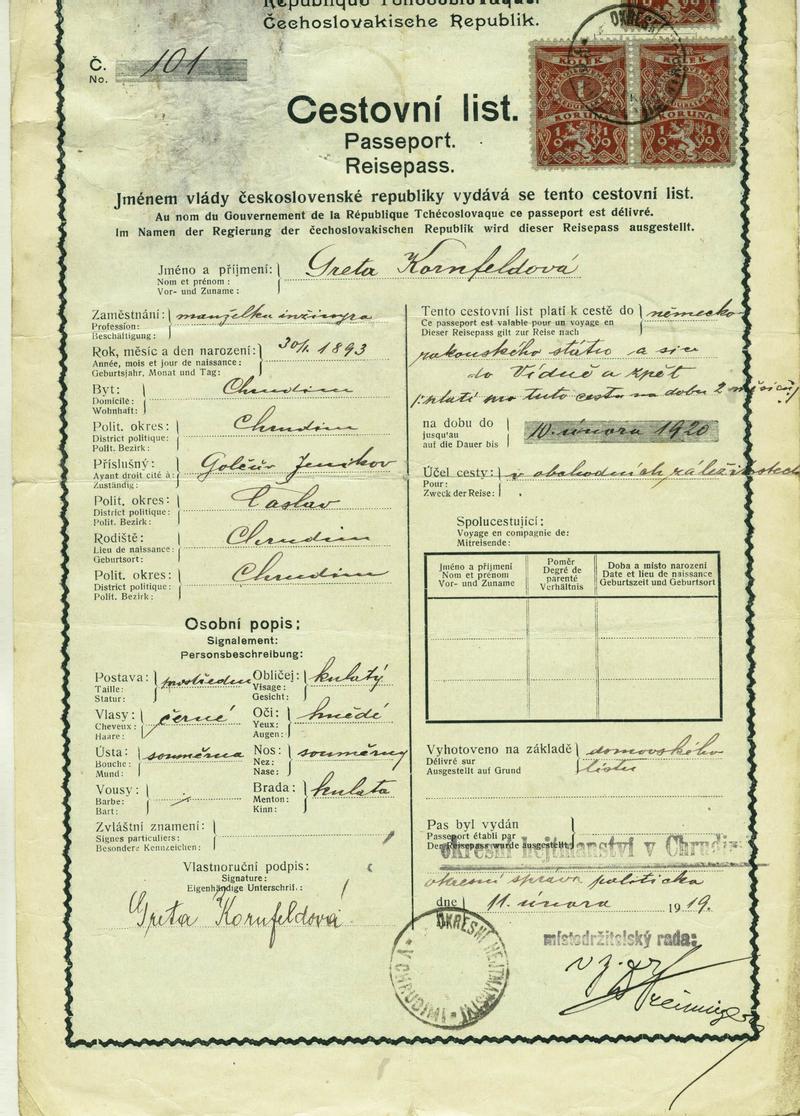 République Tchécoslovaque.
Čechoslovakische Republik.
Č. 101
No.
OKRESNÍ
KOLEK KOLEK
1 1
KORUNA KORUNA
1919 1919
Cestovní list.
Passeport.
Reisepass.
Jménem vlády československé republiky vydává se tento cestovní list.
Au nom du Gouvernement de la République Tchécoslovaque ce passeport est délivré.
Im Namen der Regierung der čechoslovakischen Republik wird dieser Reisepass ausgestellt.
Jméno a příjmení: Greta Kornfeldová
Nom et prénom:
Vor- und Zuname:
Zaměstnání: manželka inžinýra
Profession:
Beschäftigung:
Rok, měsíc a den narození: 30/1. 1893
Année, mois et jour de naissance:
Geburtsjahr, Monat und Tag:
Byt: Chrudim
Domicile:
Wohnhaft:
Polit. okres: Chrudim
District politique:
Polit. Bezirk:
Příslušný: Golčův Jeníkov
Ayant droit cité à:
Zuständig:
Polit. okres: Čáslav
District politique:
Polit. Bezirk:
Rodiště: Chrudim
Lieu de naissance:
Geburtsort:
Polit. okres: Chrudim
District politique:
Polit. Bezirk:
Osobní popis:
Signalement:
Personsbeschreibung:
Postava: prostřední Obličej: kulatý
Taille: Visage:
Statur: Gesicht:
Vlasy: černé Oči: hnědé
Cheveux: Yeux:
Haare: Augen:
Ústa: souměrna Nos: souměrný
Bouche: Nez:
Mund: Nase:
Vousy: Brada: kulata
Barbe: Menton:
Bart: Kinn:
Zvláštní znamení:
Signes particuliers:
Besondere Kennzeichen:
Vlastnoruční podpis:
Signature:
Eigenhändige Unterschrif.:
Greta Kornfeldová
Tento cestovní list platí k cestě do německo-
Ce passeport est valable pour un voyage en
Dieser Reisepass gilt zur Reise nach
rakouského státu a sice
do Vídně a zpět
platí pro tuto cestu na dobu 2 měsíců
na dobu do 10. února 1920
jusqu'au
auf die Dauer bis
Účel cesty: v obchodních záležitostech
Pour:
Zweck der Reise:
Spolucestující:
Voyage en compagnie de:
Mitreisende:
Jméno a příjmení Poměr Doba a místo narození
Nom et prénom Degré de parenté Date et lieu de naissance
Vor- und Zuname Verhältnis Geburtszeit und Geburtsort
Vyhotoveno na základě domovského
Délivré sur listu
Ausgestellt auf Grund
Pas byl vydán
Passeport établi par
Der Reisepass wurde ausgestellt
okresní hejtmanství v Chrudimi
okresní správa politická
dne 11. února 1919.
místodržitelský rada:
OKRESNÍ HEJTMANSTVÍ
V CHRUDIMI